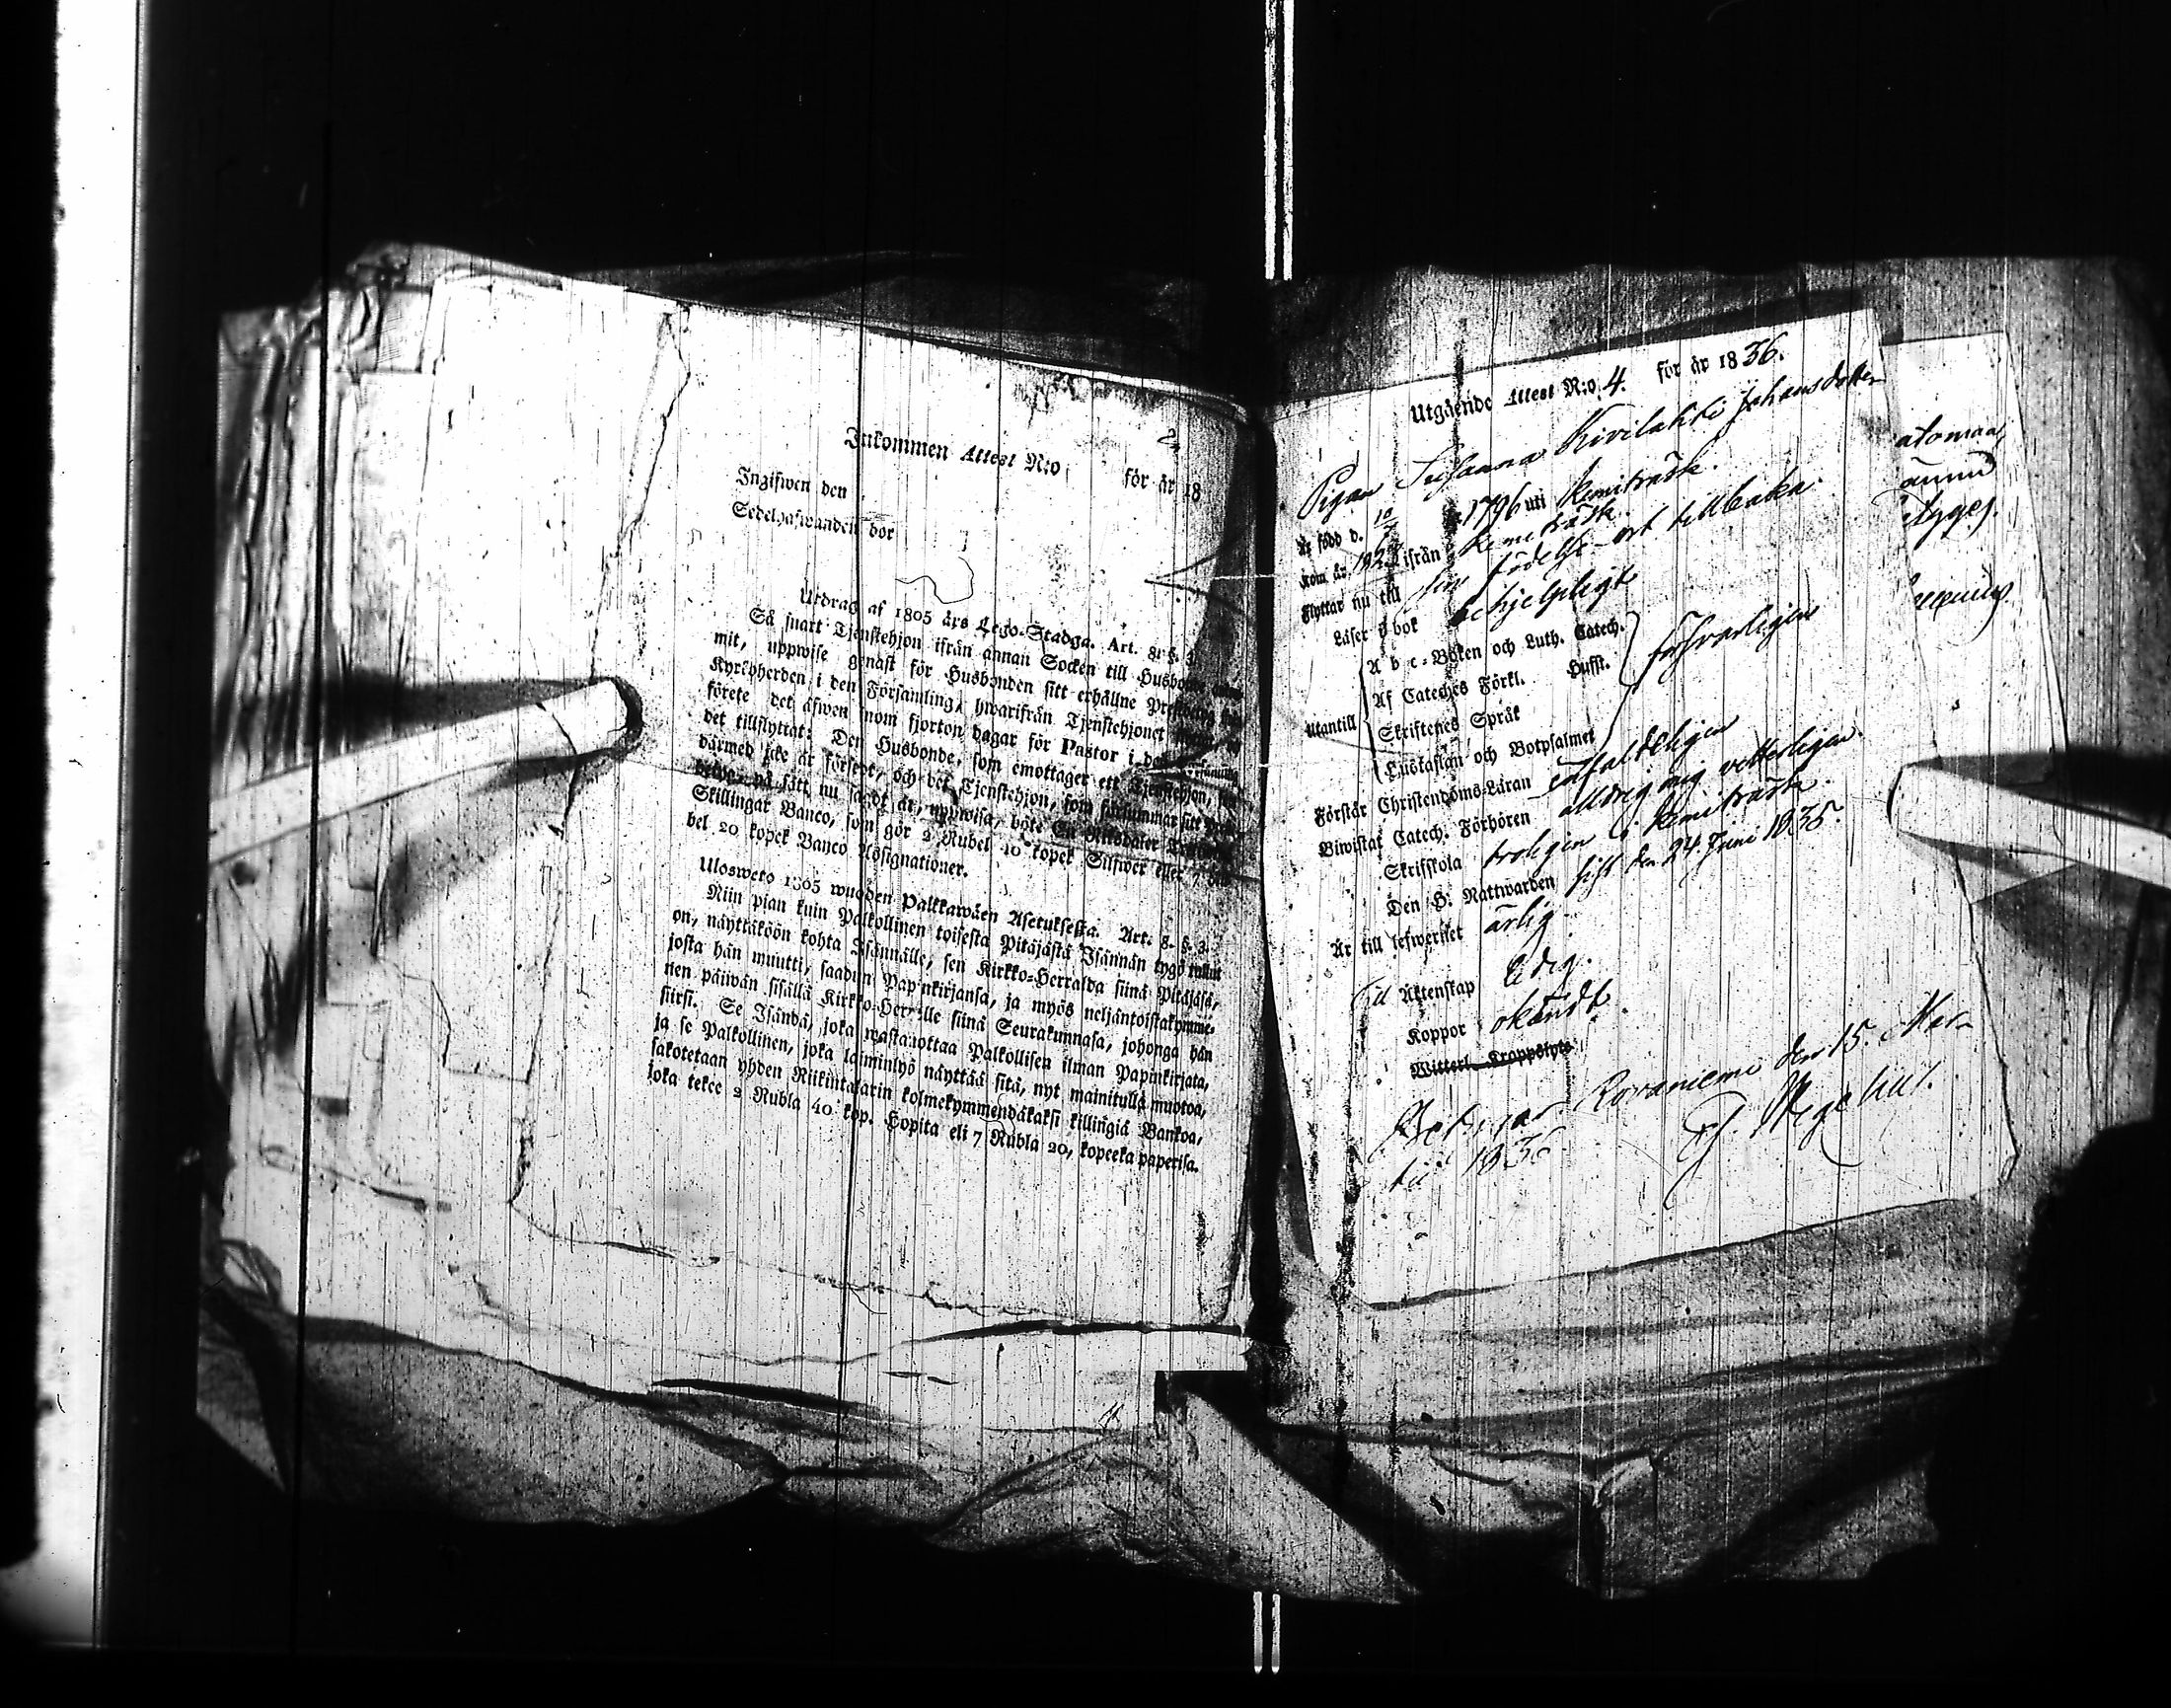 Inkommen Attest N:o för år 18
Ingifwen den
Sedelhafwanden bor
Utdrag af 1805 års Lego-Stadga. Art. 8. §. 3.
Så snart Tjenstehjon ifrån annan Socken till Husbonde
mit, uppwise genast för Husbonden sitt erhållne
Kyrkoherden i den Församling, hwarifrån Tjenstehjonet
förete det äfwen inom fjorton dagar för Pastor i den
det tillflyttat: Den Husbonde, som emottager ett Tjenstehjon,
därmed icke är försedt, och det Tjenstehjon, som försummar sitt
på sätt nu sagdt är, uppwisa, böte En Riksdaler
Skillingar Banco, som gör 2 Rubel 40 kopek Silfwer eller 7
bel 20 kopek Banco Assignationer.
Ulosweto 1805 wuoden Palkkawäen Asetuksesta. Art. 8. §. 3.
Niin pian kuin Palkollinen toisesta Pitäjästä Isännän tygö tullut
on, näyttäköön kohta Isännälle, sen Kirkko-Herralda siinä Pitäjäsä,
josta hän muutti, saadun Papinkirjansa, ja myös neljäntoistakymme-
nen päiwän sisällä Kirkko-Herralle siinä Seurakunnasa, johonga hän
siirsi. Se Isändä, joka wastanottaa Palkollisen ilman Papinkirjata,
ja se Palkollinen, joka laiminlyö näyttää sitä, nyt mainitulla muotoa,
sakotetaan yhden Riikintalarin kolmekymmendäkaksi killingiä Bankoa,
joka tekee 2 Rubla 40 kop. Hopita eli 7 Rubla 20, kopeeka paperisa.
Utgående Attest N:o 4. för år 1836.
Pigan Susanna Kivilahti Johansdotter
Är född d. 10/4 1796 uti Kemiträsk.
Kom år ifrån Kemiträsk.
Flyttar nu till sin födelse-ort tillbaka.
Läser i bok behjelpligt
Utantill
A b c-Boken och Luth. Catech.
Af Cateches Förkl. Hufst.
försvarligen
Skriftenes Språk
Hustaflan och Botpsalmer
Förstår Christendoms-Läran enfaldeligen
Biwistat Catech. Förhören aldrig mig vetterligen.
Skriftskola troligen i Kemiträsk.
Den H. Nattwarden sist den 24 Juni 1835.
Är till lefwernet ärlig.
Til Äktenskap ledig.
Koppor okändt.
Witterl. Kroppslyte
Rovaniemi den 15. Mar-
tii 1836